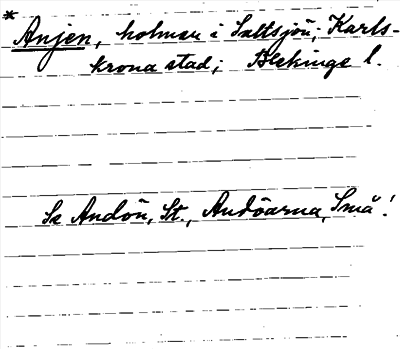 * Anjen, holmar i Saltsjön; Karls-
krona stad; Blekinge l.
Se Andön, St., Andöarna, Små!